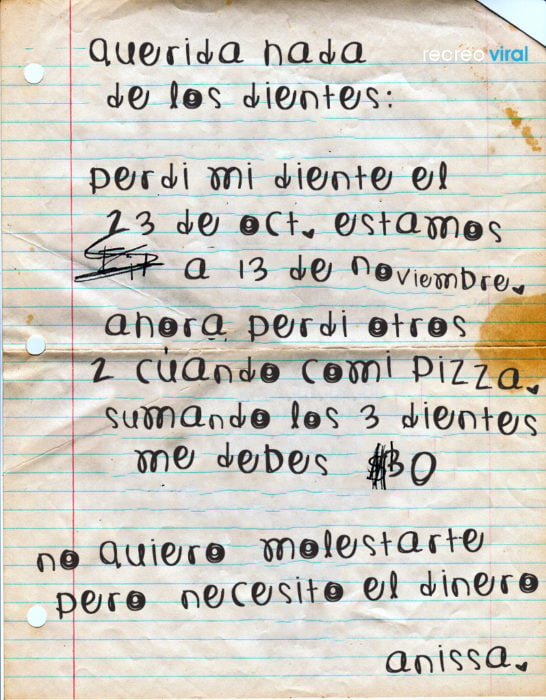 recreo viral
querida hada
de los dientes:
perdi mi diente el
23 de oct. estamos
a 13 de noviembre.
ahora perdi otros
2 cuando comi pizza.
sumando los 3 dientes
me debes $30
no quiero molestarte
pero necesito el dinero
anissa.